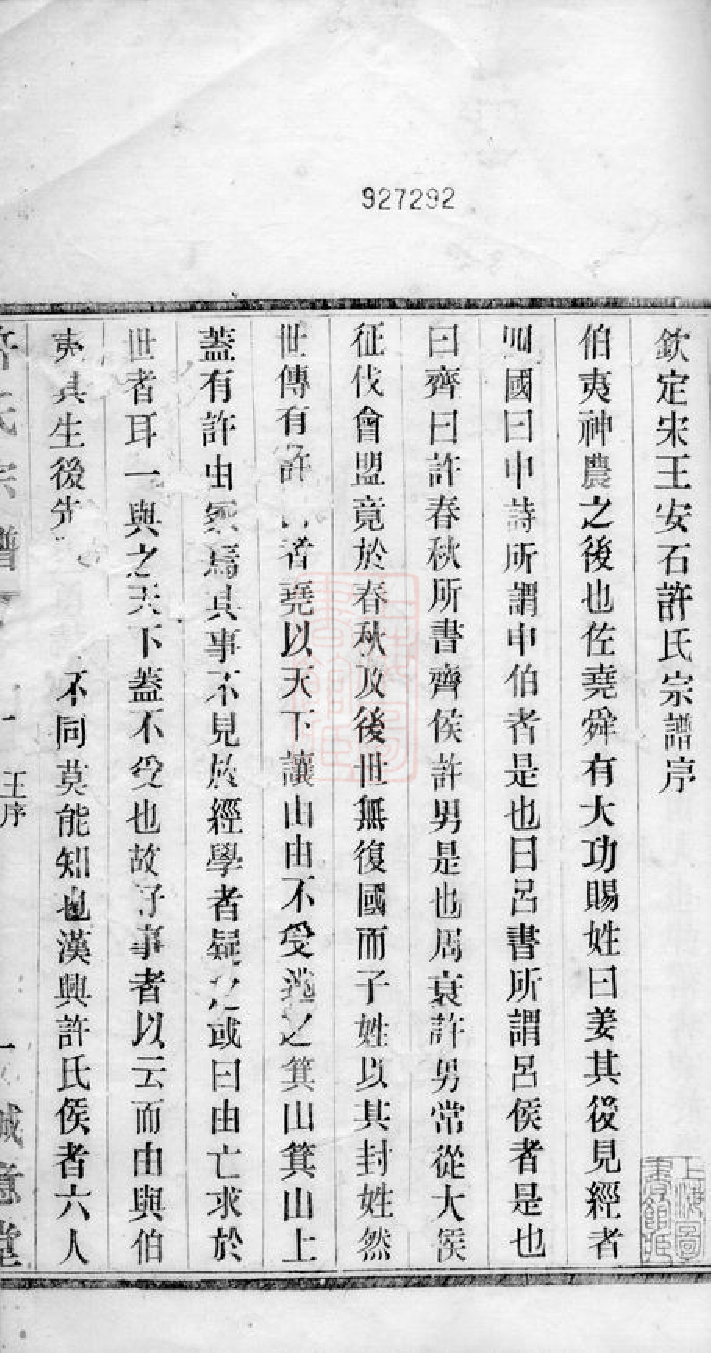 927292
欽定宋王安石許氏宗譜序
伯夷神農之後也佐堯舜有大功賜姓曰姜其後見經者
四國曰申詩所謂申伯者是也曰呂書所謂呂侯者是也
曰齊曰許春秋所書齊侯許男是也周衰許男常從大侯
征伐會盟竟於春秋及後世無復國而子姓以其封姓然
世傳有許 者堯以天下讓由由不受逃之箕山箕山上
蓋有許由冢焉其事不見於經學者疑之或曰由亡求於
世者耳一與之天下蓋不受也故好事者以云而由與伯
夷其生後先 不同莫能知也漢興許氏侯者六人
許氏宗譜
一 王序
誠意堂
上海圖書館藏